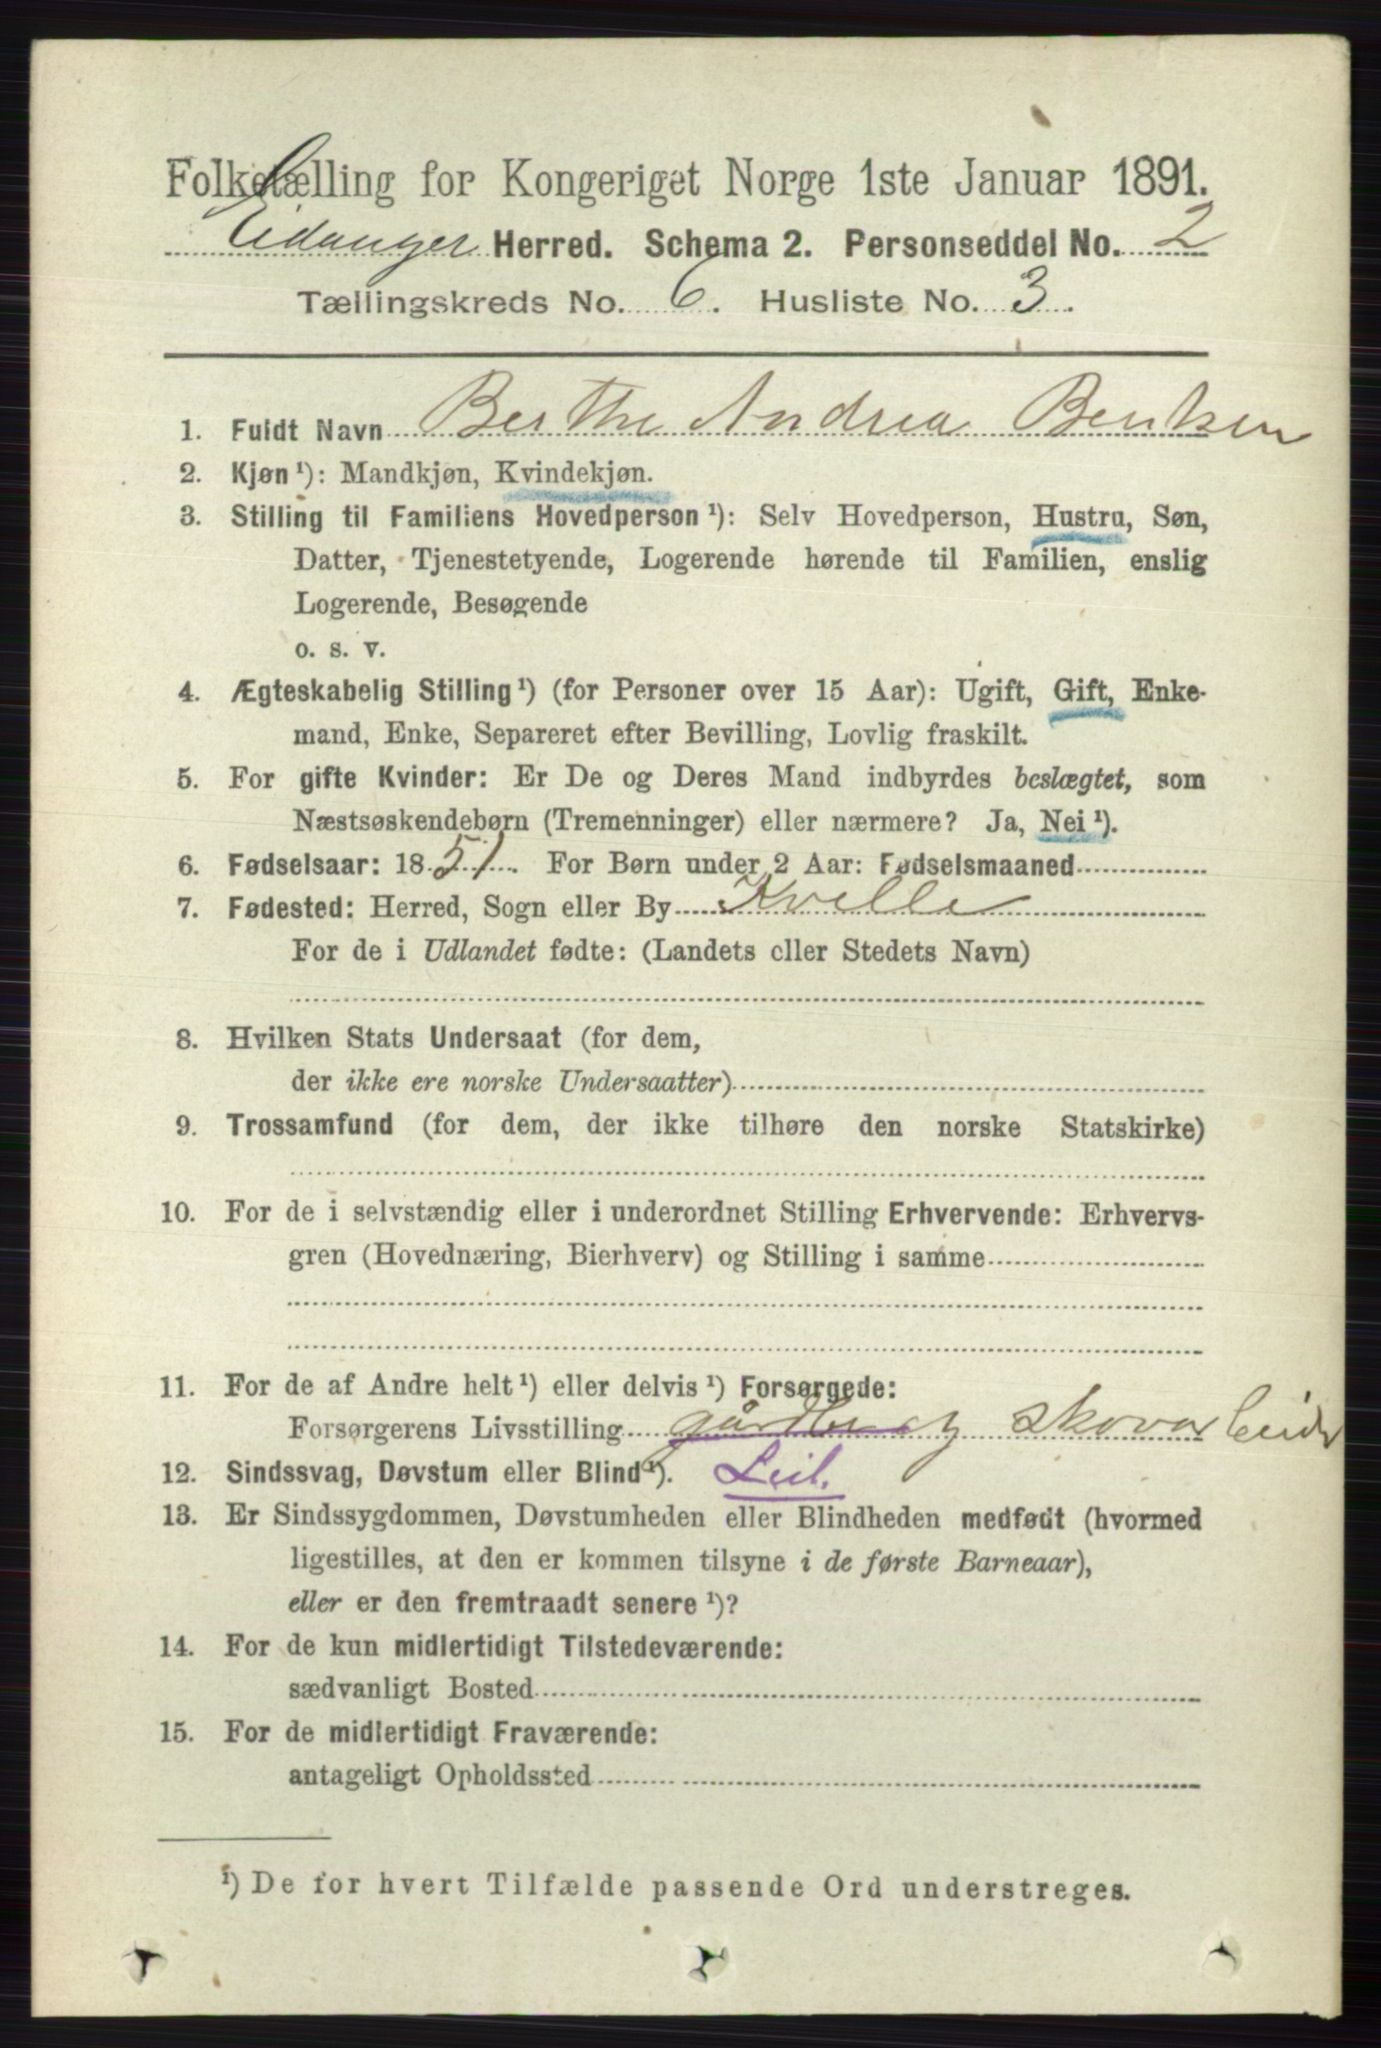 Folketælling for Kongeriget Norge 1ste Januar 1891.
Eidanger Herred. Schema 2. Personseddel No. 2
Tællingskreds No. 6. Husliste No. 3.
1. Fuldt Navn Berthe Andrea Bentsen
2. Kjøn ¹): Mandkjøn, Kvindekjøn.
3. Stilling til Familiens Hovedperson ¹): Selv Hovedperson, Hustru, Søn,
Datter, Tjenestetyende, Logerende hørende til Familien, enslig
Logerende, Besøgende
o. s. v.
4. Ægteskabelig Stilling ¹) (for Personer over 15 Aar): Ugift, Gift, Enke-
mand, Enke, Separeret efter Bevilling, Lovlig fraskilt.
5. For gifte Kvinder: Er De og Deres Mand indbyrdes beslægtet, som
Næstsøskendebørn (Tremenninger) eller nærmere? Ja, Nei ¹).
6. Fødselsaar: 1851. For Børn under 2 Aar: Fødselsmaaned
7. Fødested: Herred, Sogn eller By Kvelle
For de i Udlandet fødte: (Landets cller Stedets Navn)
8. Hvilken Stats Undersaat (for dem,
der ikke ere norske Undersaatter)
9. Trossamfund (for dem, der ikke tilhøre den norske Statskirke)
10. For de i selvstændig eller i underordnet Stilling Erhvervende: Erhvervs-
gren (Hovednæring, Bierhverv) og Stilling i samme
11. For de af Andre helt ¹) eller delvis ¹) Forsørgede:
Forsørgerens Livsstilling gårdbr og skovarbeider
12. Sindssvag, Døvstum eller Blind ¹). Leil.
13. Er Sindssygdommen, Døvstumheden eller Blindheden medfødt (hvormed
ligestilles, at den er kommen tilsyne i de første Barneaar),
eller er den fremtraadt senere ¹)?
14. For de kun midlertidigt Tilstedeværende:
sædvanligt Bosted
15. For de midlertidigt Fraværende:
antageligt Opholdssted
¹) De for hvert Tilfælde passende Ord understreges.